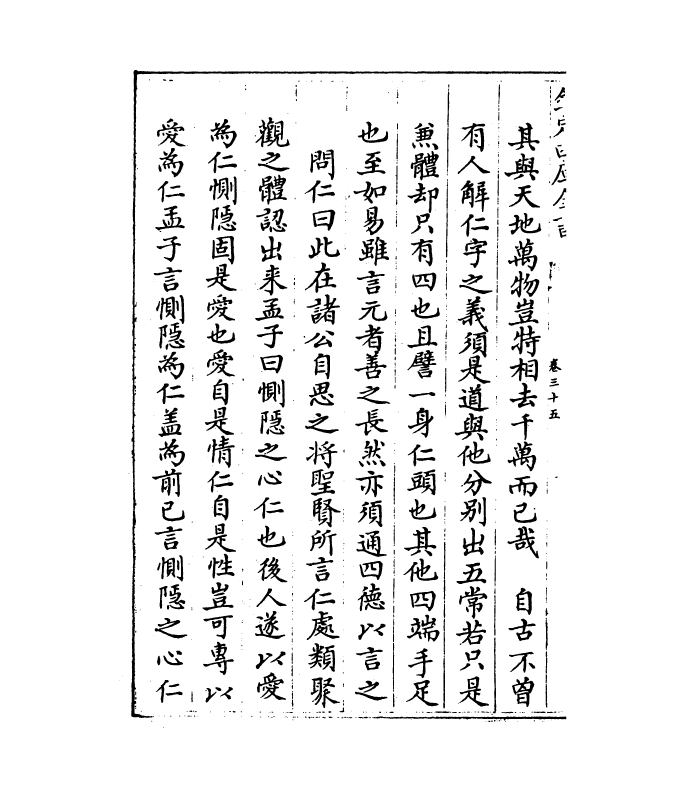 欽定四庫全書
卷三十五
其與天地萬物豈特相去千萬而已哉　自古不曾
有人解仁字之義須是道與他分别出五常若只是
兼體却只有四也且譬一身仁頭也其他四端手足
也至如易雖言元者善之長然亦須通四德以言之
問仁曰此在諸公自思之将聖賢所言仁處類聚
觀之體認出来孟子曰惻隠之心仁也後人遂以愛
為仁惻隠固是愛也愛自是情仁自是性豈可專以
愛為仁孟子言惻隠為仁盖為前已言惻隠之心仁